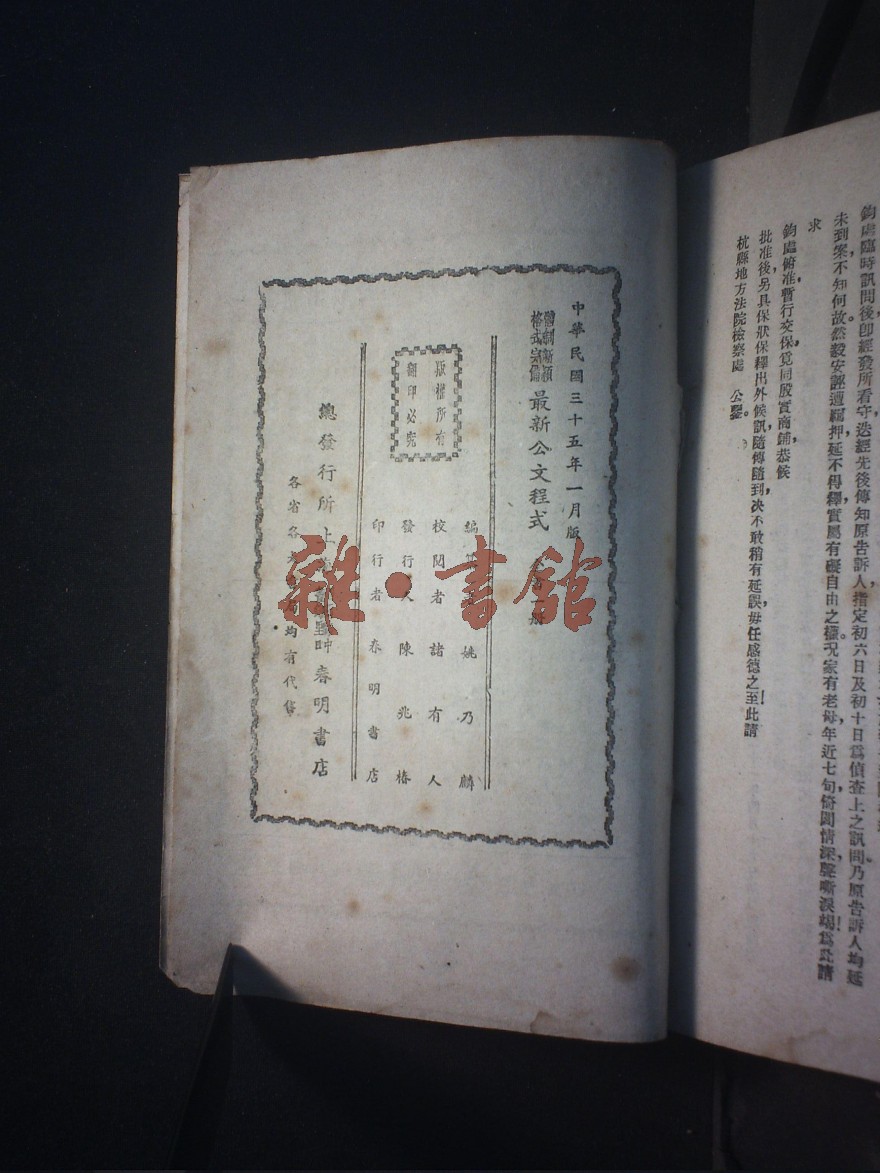 鈞處臨時訊問後卽經發所看守迭經先後傳知原告訴人指定初六日及初十日爲偵查上之訊問乃原告訴人均延
未到案不知何故然毅安誣遭羈押延不得釋實屬有礙自由之權況家有老母年近七旬倚閭情深聲嘶淚竭爲此請
求
鈞處俯准暫行交保覓同殷實商鋪恭候
批准後另具保狀保釋出外候訊隨傳隨到决不敢稍有延誤毋任感德之至此請
杭縣地方法院檢察處 公鑒。
中華民國三十五年一月版
體制新頴
格式完備
最新公文程式
册
編 姚乃麟
校閱者 諸有人
發行人 陳兆椿
印行者 春明書店
版權所有
翻印必究
總發行所 上 春明書店
各省各 均有代售
雜·書舘